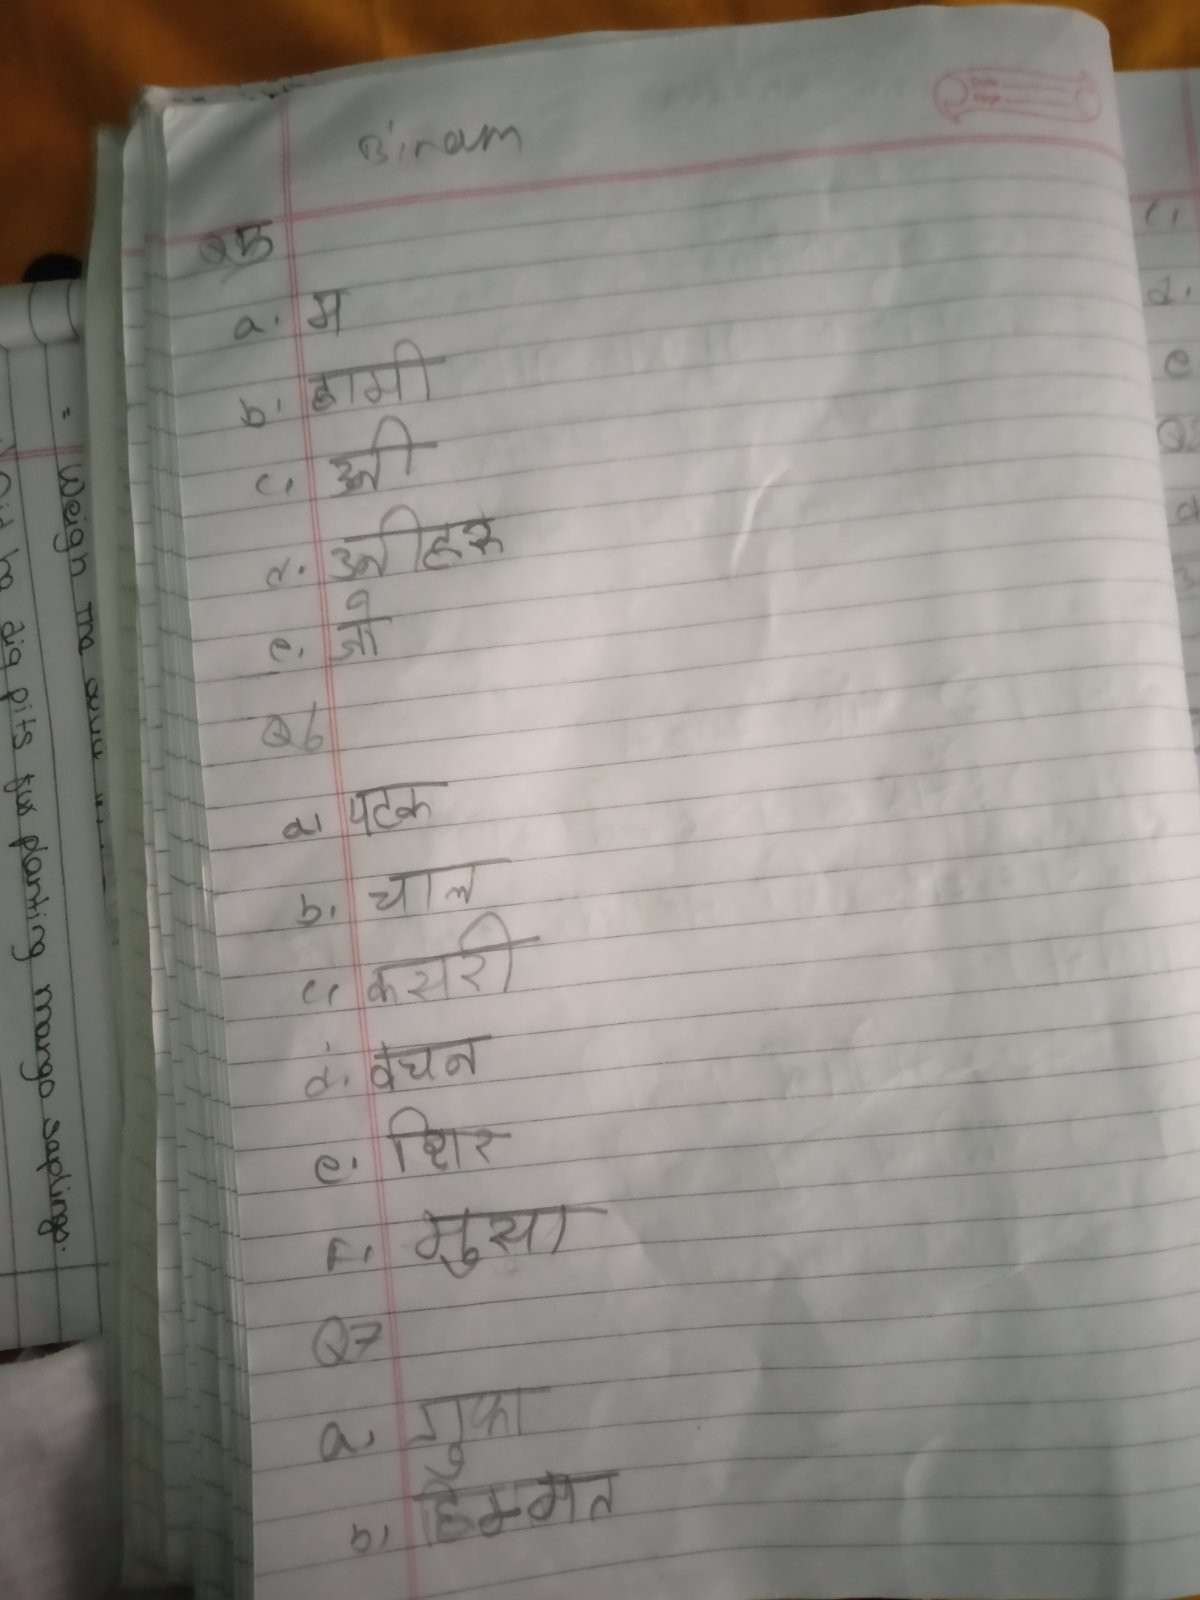 Date
Page
Binam
Q5
a. म
b. हामी
c. उनी
d. उनीहरु
e. जो
Q6
a. पटक
b. चाल
c. कसरी
d. वचन
e. शिर
F. मुसा
Q7
a. गुफा
b. हिम्मत
c.
d.
e
= Weigh the
he dig pits for planting mango saplings.